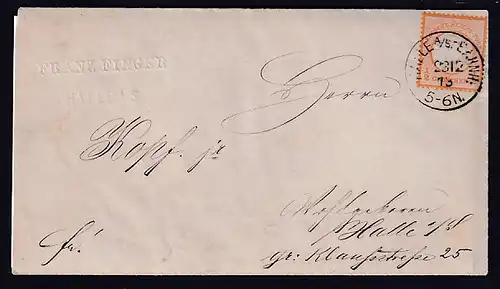 FRANZ FIEGER
HALLE A/S
HALLE A/S. BAHNH.
23 12
73
5-6N.
Herrn
Kopf. jr
Wohlgeboren
Halle a/S
fr.
gr: Klausstraße 25